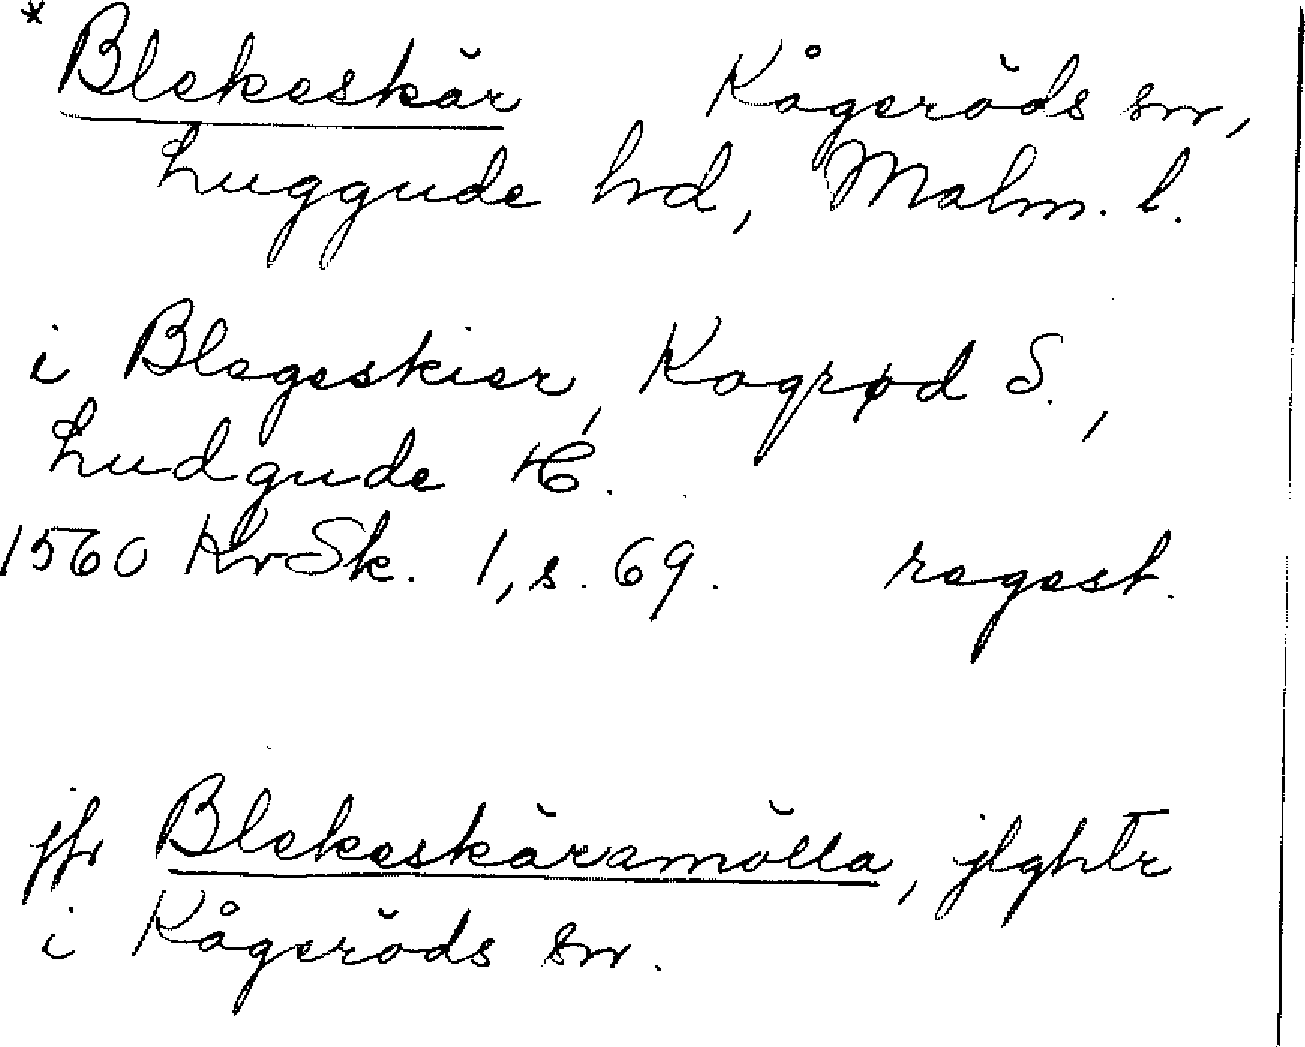 * Blekeskär Kågeröds sn,
Luggude hd, Malm. l.
i Blegeskier, Kogrød S.,
Ludgude H.
1560 KrSk. 1, s. 69. regest.
jfr Blekeskäramölla, jlghtr
i Kågeröds sn.